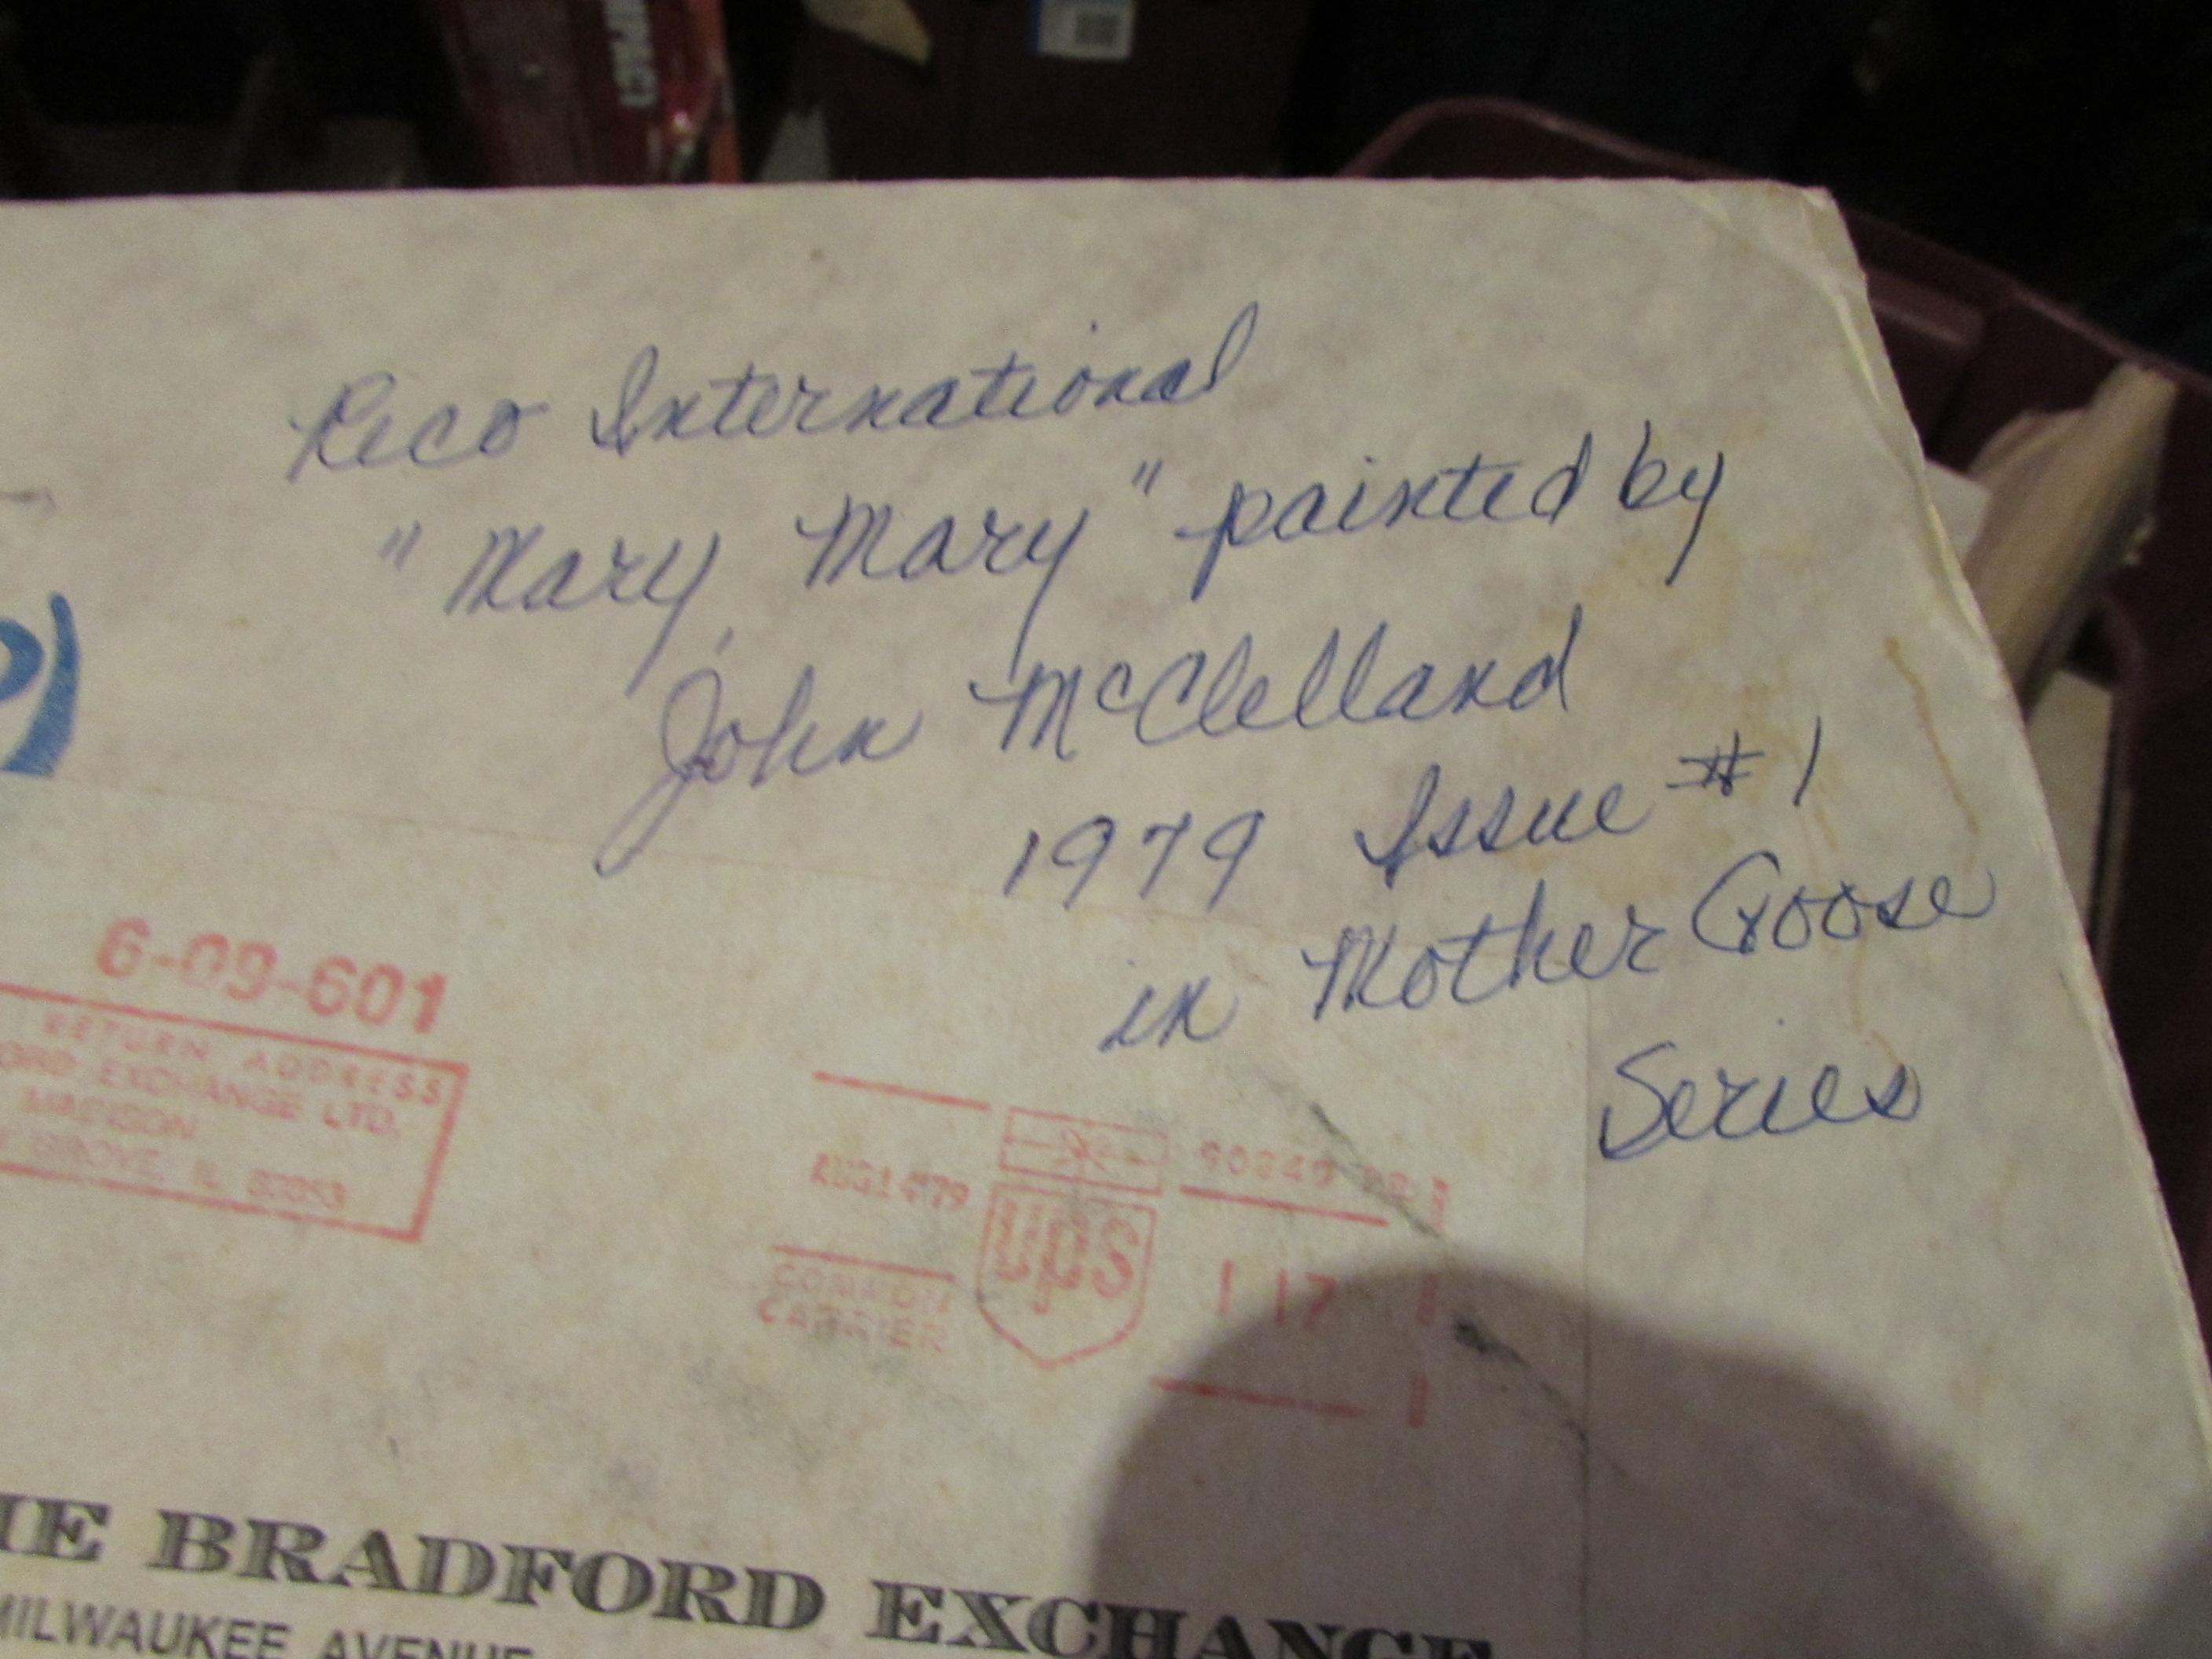 Reco International
"Mary Mary" painted by
John McClelland
1979 Issue #1
in Mother Goose
Series
6-09-601
RETURN ADDRESS
ORD EXCHANGE LTD.
MADISON
GROVE, IL
COMMON
CARRIER
ups
1 17
IE BRADFORD EXCHANGE
MILWAUKEE AVENUE